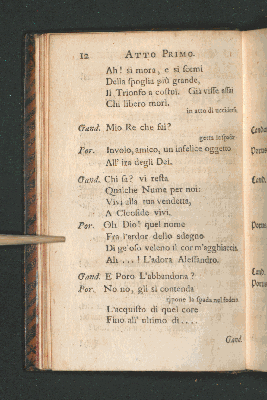 12 ATTO PRIMO.
Ah! si mora, e si scemi
Della spoglia più grande,
Il Trionfo a costui. Già visse assai
Chi libero morì.
in atto di uccidersi
Gand. Mio Re che fai?
getta la spada
Por. Involo, amico, un infelice oggetto
All' ira degli Dei.
Gand. Chi sa? vi resta
Qualche Nume per noi:
Vivi alla tua vendetta,
A Cleofide vivi.
Por. Oh Dio! quel nome
Fra l'ardor dello sdegno
Di geloso veleno il cor m'agghiaccia.
Ah ...! L'adora Alessandro.
Gand. E Poro L'abbandona?
Por. No no, gli si contenda
ripone la spada nel fodero
L'acquisto di quel core
Fino all' ultimo dì ....
Gand.